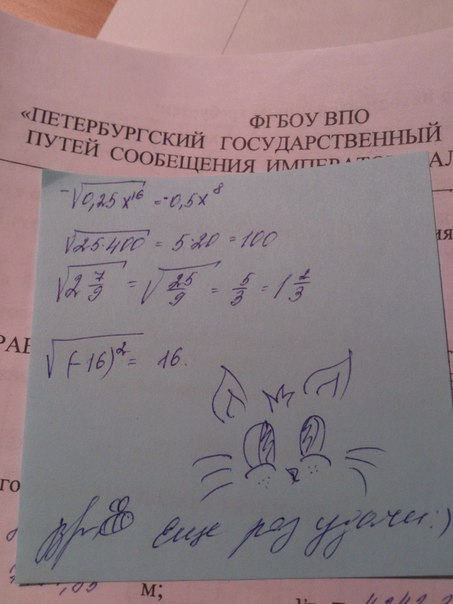 ФГБОУ ВПО
«ПЕТЕРБУРГСКИЙ ГОСУДАРСТВЕННЫЙ
ПУТЕЙ СООБЩЕНИЯ ИМПЕРАТО АЛ
-√0,25x¹⁶ = -0,5x⁸
√25·400 = 5·20 = 100
√2 7/9 = √25/9 = 5/3 = 1 2/3
√(-16)² = 16.
еще раз удачи :)
м;